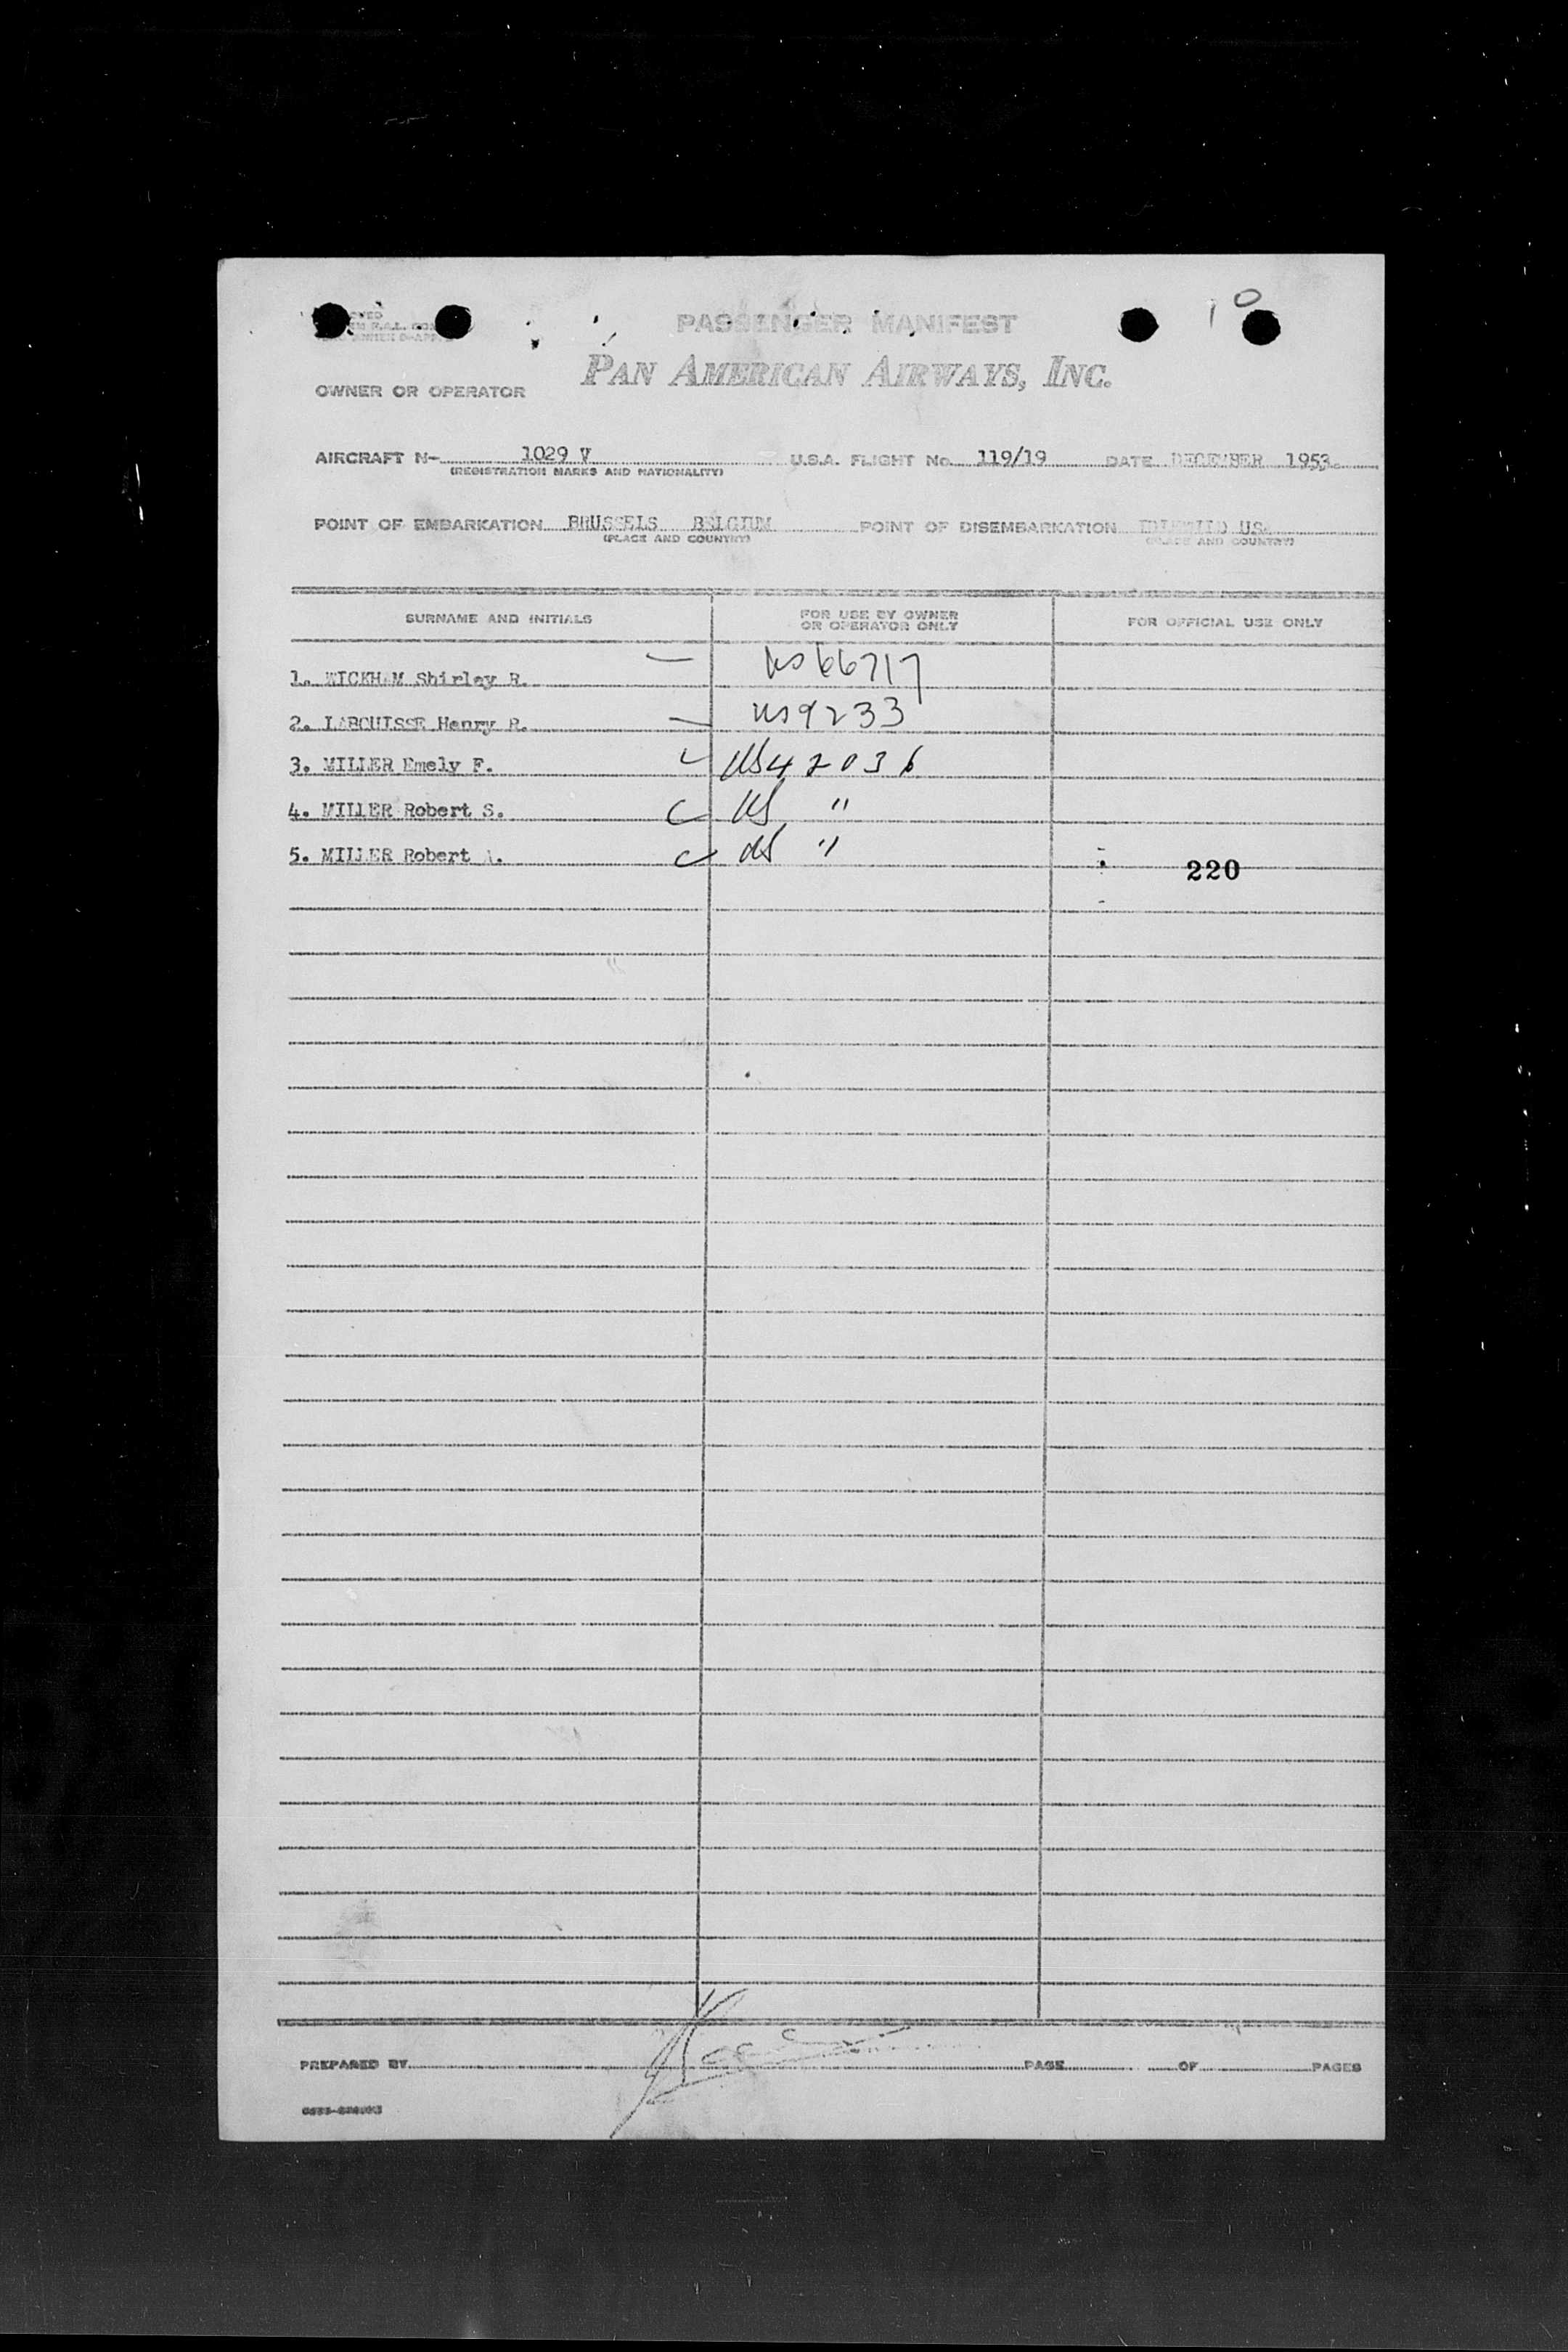 10
PASSENGER MANIFEST
OWNER OR OPERATOR PAN AMERICAN AIRWAYS, INC.
AIRCRAFT N- 1029 V U.S.A. FLIGHT No. 119/19 DATE DECEMBER 1953.
(REGISTRATION MARKS AND NATIONALITY)
POINT OF EMBARKATION BRUSSELS BELGIUM POINT OF DISEMBARKATION IDLEWILD USA
(PLACE AND COUNTRY) (PLACE AND COUNTRY)
SURNAME AND INITIALS FOR USE BY OWNER OR OPERATOR ONLY FOR OFFICIAL USE ONLY
1. WICKHAM Shirley R. US 66717
2. LABOUISSE Henry R. US 9233
3. MILLER Emely F. US 42036
4. MILLER Robert S. US "
5. MILLER Robert A. US "
220
PREPARED BY PAGE OF PAGES